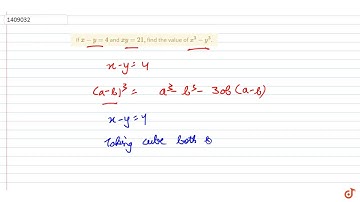 1409032
If x − y = 4 and xy = 21, find the value of x³ − y³.
x-y=4
(a-b)³ = a³- b³- 3ab (a-b)
x-y=4
Taking cube both s